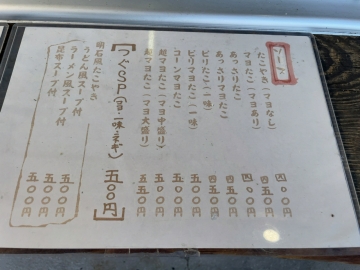 ソース
たこやき(マヨなし) 四〇〇円
マヨたこ(マヨあり) 四五〇円
あっさりたこ 四〇〇円
あっさりマヨたこ 四五〇円
ピリたこ(一味) 四五〇円
ピリマヨたこ(一味) 五〇〇円
コーンマヨたこ 五〇〇円
超マヨたこ(マヨ中盛り) 五〇〇円
超マヨたこ(マヨ大盛り) 五五〇円
【つぐSP(マヨ・一味・ネギ) 五〇〇円】
明石風たこやき
うどん風スープ付 五〇〇円
ラーメン風スープ付 五〇〇円
昆布スープ付 五〇〇円